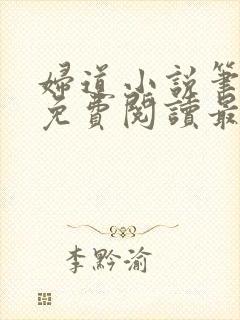 婦道小說筆
免費閱讀最
李黔渝